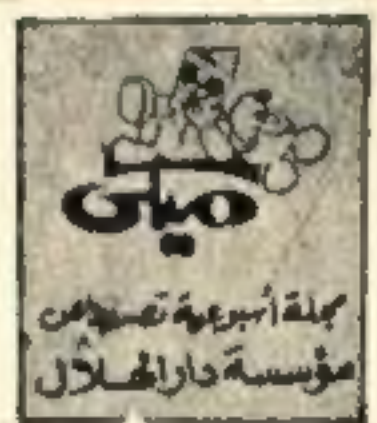 ميكى
مجلة أسبوعية تصدر عن
مؤسسة دار الهلال